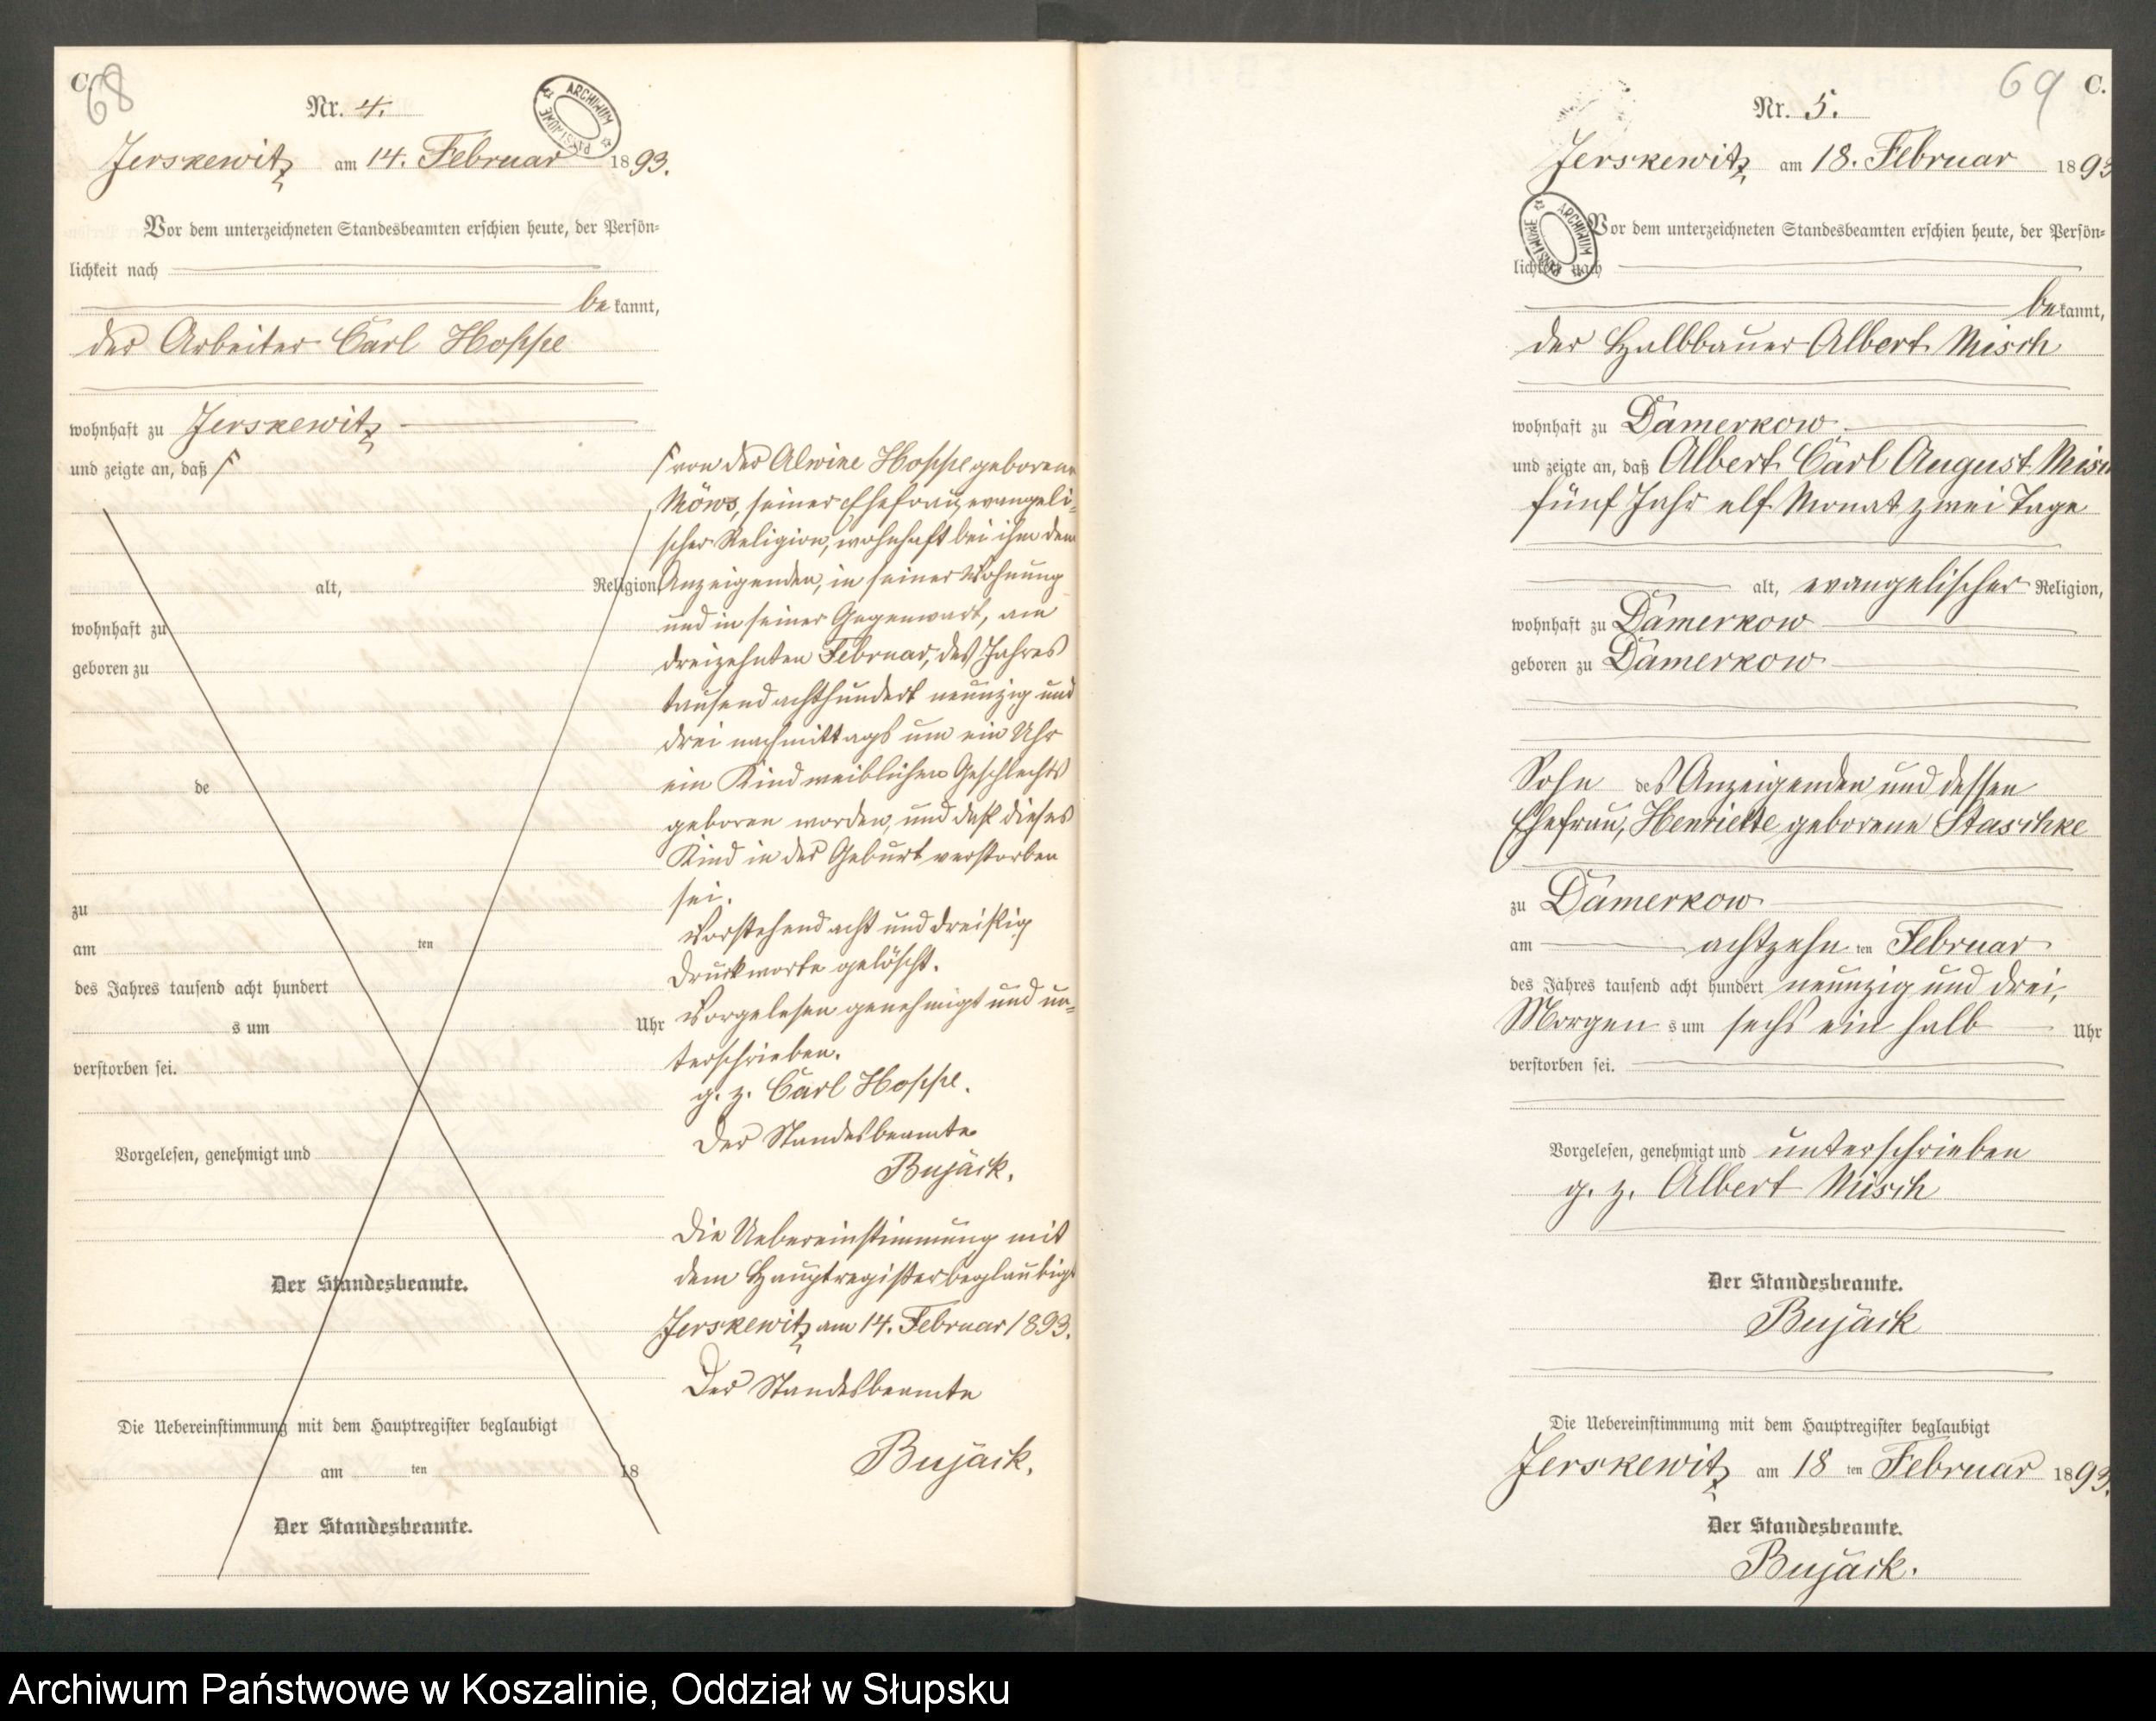 C.
68
Nr. 4.
ARCHIWUM PAŃSTWOWE
Jerskewitz am 14. Februar 1893.
Vor dem unterzeichneten Standesbeamten erschien heute, der Persön-
lichkeit nach
bekannt,
der Arbeiter Carl Hoppe
wohnhaft zu Jerskewitz
und zeigte an, daß
alt, Religion,
wohnhaft zu
geboren zu
de
zu
am ten
des Jahres tausend acht hundert
s um Uhr
verstorben sei.
Vorgelesen, genehmigt und
Der Standesbeamte.
Die Uebereinstimmung mit dem Hauptregister beglaubigt
am ten 18
Der Standesbeamte.
von der Alwine Hoppe geborene
Möws, seiner Ehefrau, evangeli-
scher Religion, wohnhaft bei ihm dem
Anzeigenden, in seiner Wohnung
und in seiner Gegenwart, am
dreizehnten Februar, des Jahres
tausend achthundert neunzig und
drei nachmittags um ein Uhr
ein Kind weiblichen Geschlechts
geboren worden, und daß dieses
Kind in der Geburt verstorben
sei.
Vorstehend acht und dreißig
Druckworte gelöscht.
Vorgelesen genehmigt und un-
terschrieben.
g. z. Carl Hoppe.
Der Standesbeamte
Bujack.
Die Uebereinstimmung mit
dem Hauptregister beglaubigt
Jerskewitz am 14. Februar 1893.
Der Standesbeamte
Bujack.
69 C.
Nr. 5.
Jerskewitz am 18. Februar 1893
ARCHIWUM PAŃSTWOWE
Vor dem unterzeichneten Standesbeamten erschien heute, der Persön-
lichkeit nach
bekannt,
der Halbbauer Albert Misch
wohnhaft zu Damerkow
und zeigte an, daß Albert Carl August Misch
fünf Jahr elf Monat zwei Tage
alt, evangelischer Religion,
wohnhaft zu Damerkow
geboren zu Damerkow
Sohn des Anzeigenden und dessen
Ehefrau, Henriette geborene Staschke
zu Damerkow
am achtzehn ten Februar
des Jahres tausend acht hundert neunzig und drei,
Morgen s um sechs ein halb Uhr
verstorben sei.
Vorgelesen, genehmigt und unterschrieben
g. z. Albert Misch
Der Standesbeamte.
Bujack
Die Uebereinstimmung mit dem Hauptregister beglaubigt
Jerskewitz am 18 ten Februar 1893.
Der Standesbeamte.
Bujack.
Archiwum Państwowe w Koszalinie, Oddział w Słupsku